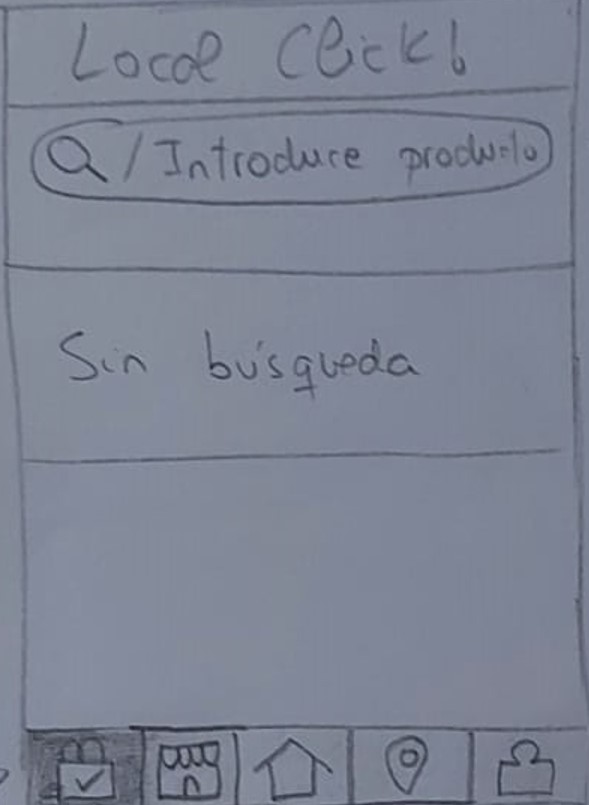 Local Click!
/Introduce producto
Sin búsqueda